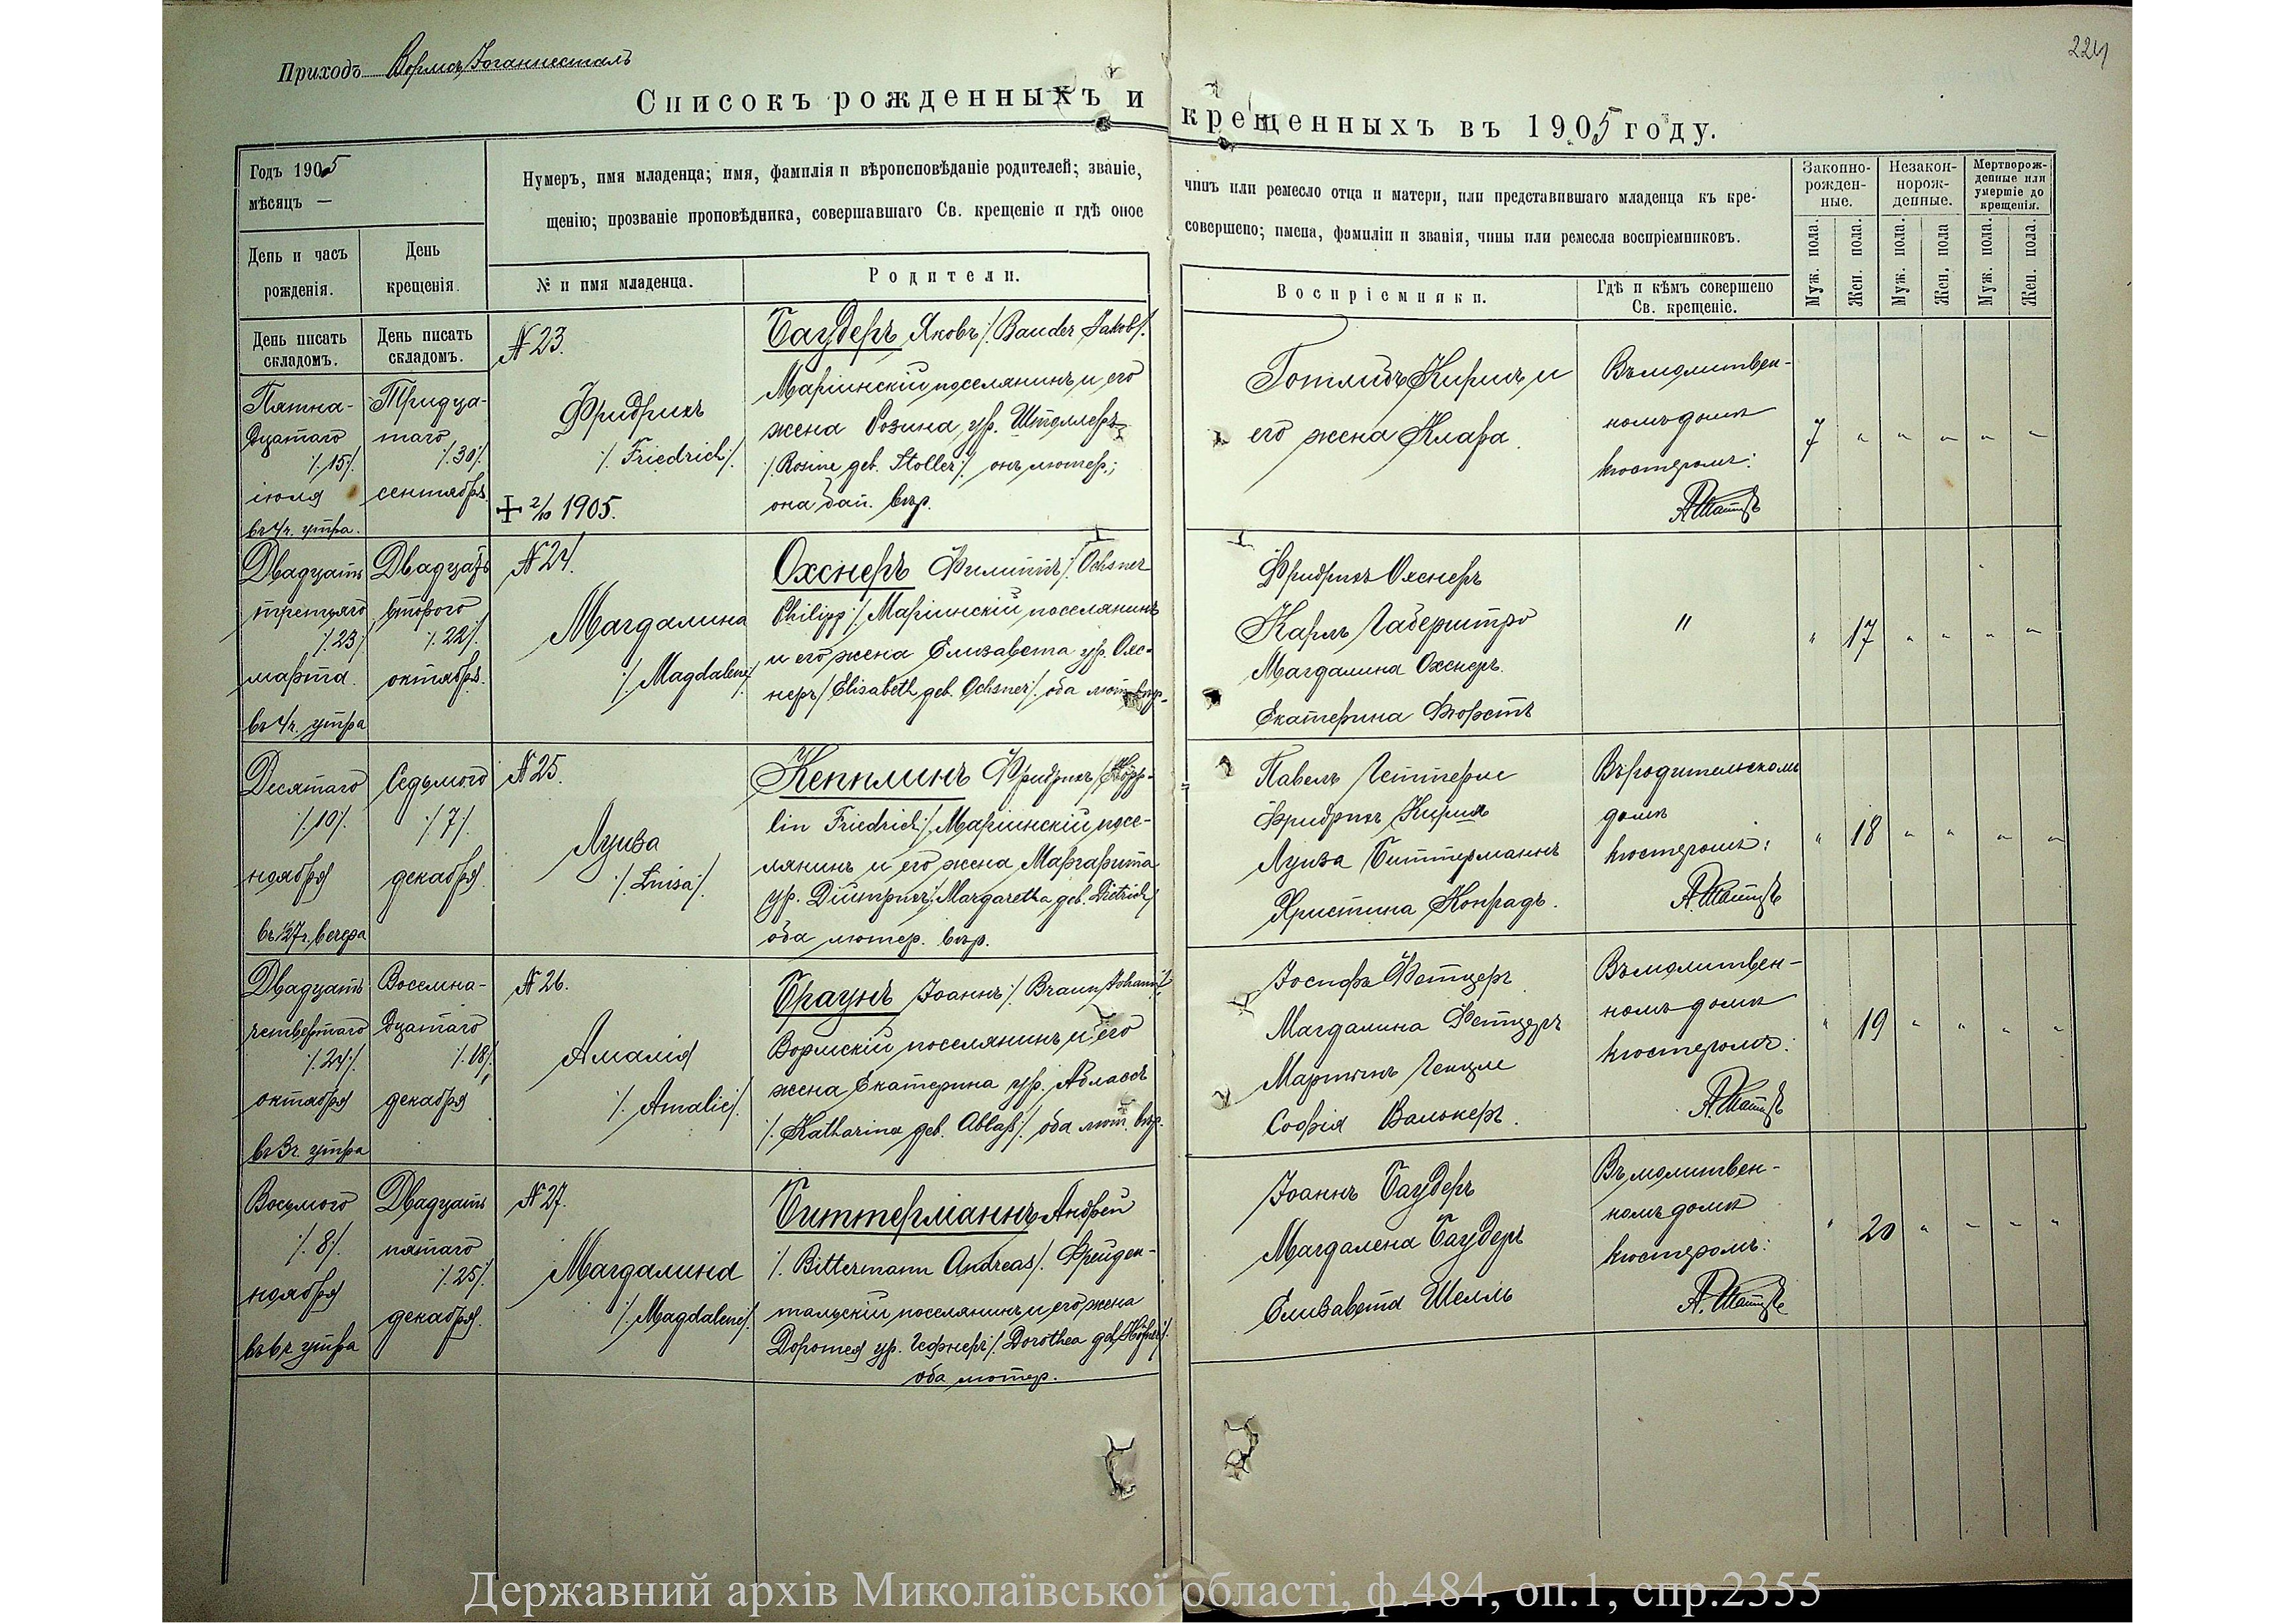 Приходъ Вормсъ/Іоганнесталь
224
Списокъ рожденныхъ и крещенныхъ въ 1905 году.
Годъ 1905
мѣсяцъ —
Нумеръ, имя младенца; имя, фамилія и вѣроисповѣданіе родителей; званіе,
щенію; прозваніе проповѣдника, совершавшаго Св. крещеніе и гдѣ оное
чинъ или ремесло отца и матери, или представившаго младенца къ кре-
совершено; имена, фамиліи и званія, чины или ремесла воспріемниковъ.
Законно-
рожден-
ные.
Незакон-
норож-
денные.
Мертворож-
денные или
умершіе до
крещенія.
День и часъ
рожденія.
День
крещенія.
№ и имя младенца.
Родители.
Воспріемники.
Гдѣ и кѣмъ совершено
Св. крещеніе.
Муж. пола.
Жен. пола.
Муж. пола.
Жен. пола
Муж. пола.
Жен. пола.
День писать
складомъ.
День писать
складомъ.
Пятна-
дцатаго
/.15/.
іюля
въ 4ч. утра.
Тридца-
таго
/.30/.
сентября
№ 23.
Фридрихъ
/. Friedrich/.
+ 2/10 1905.
Баудеръ Яковъ/. Bauder Jakob/.
Маріинскій поселянинъ и его
жена Розина, ур. Штоллеръ
/. Rosine geb. Stoller/. онъ лютер.;
она бап. вѣр.
Готлибъ Киршъ и
его жена Клара.
Въ молитвен-
номъ домѣ
кюстеромъ:
7 " " " " "
Двадцать
третьяго
/.23/
марта.
въ 4ч. утра
Двадцать
второго
/.22/.
октября.
№ 24.
Магдалина
/. Magdalene/.
Охснеръ Филиппъ/. Ochsner
Philipp/. Маріинскій поселянинъ
и его жена Елизавета ур. Охс-
неръ/. Elisabeth geb. Ochsner/. оба лют. вѣр.
Фридрихъ Охснеръ
Карлъ Габерштро
Магдалина Охснеръ.
Екатерина Фюрстъ
"
" 17 " " " "
Десятаго
/.10/.
ноября
въ ½7ч. вечера
Седьмого
/7/.
декабря.
№ 25.
Луиза
/. Luisa/.
Кепплинъ Фридрихъ/. Köpp-
lin Friedrich/. Маріинскій посе-
лянинъ и его жена Маргарита
ур. Дитрихъ/. Margaretha geb. Dietrich/
оба лютер. вѣр.
Павелъ Геттерле
Фридрихъ Киршъ
Луиза Биттерманнъ
Христина Конрадъ.
Въ родительскомъ
домѣ
кюстеромъ:
" 18 " " " "
Двадцать
четвертаго
/.24/.
октября
въ 3ч. утра
Восемна-
дцатаго
/.18/.
декабря
№ 26.
Амалія
/. Amalie/.
Браунъ Іоаннъ/. Braun Johann/.
Вормскій поселянинъ и его
жена Екатерина ур. Аблассъ
/. Katharina geb. Ablaß/. оба лют. вѣр.
Іосифъ Фетцеръ
Магдалина Фетцеръ
Мартинъ Генцле
Софія Валькеръ.
Въ молитвен-
номъ домѣ
кюстеромъ:
" 19 " " " "
Восьмого
/.8/.
ноября
въ 6ч утра
Двадцать
пятаго
/.25/.
декабря.
№ 27.
Магдалина
/. Magdalene/.
Биттерманнъ Андрей
/. Bittermann Andreas/. Фрейден-
тальскій поселянинъ и его жена
Доротея ур. Гефнеръ/. Dorothea geb. Höfner/.
оба лютер.
Іоаннъ Баудеръ
Магдалена Баудеръ
Елизавета Шелль
Въ молитвен-
номъ домѣ
кюстеромъ:
" 20 " " " "
Державний архів Миколаївської області, ф.484, оп.1, спр.2355